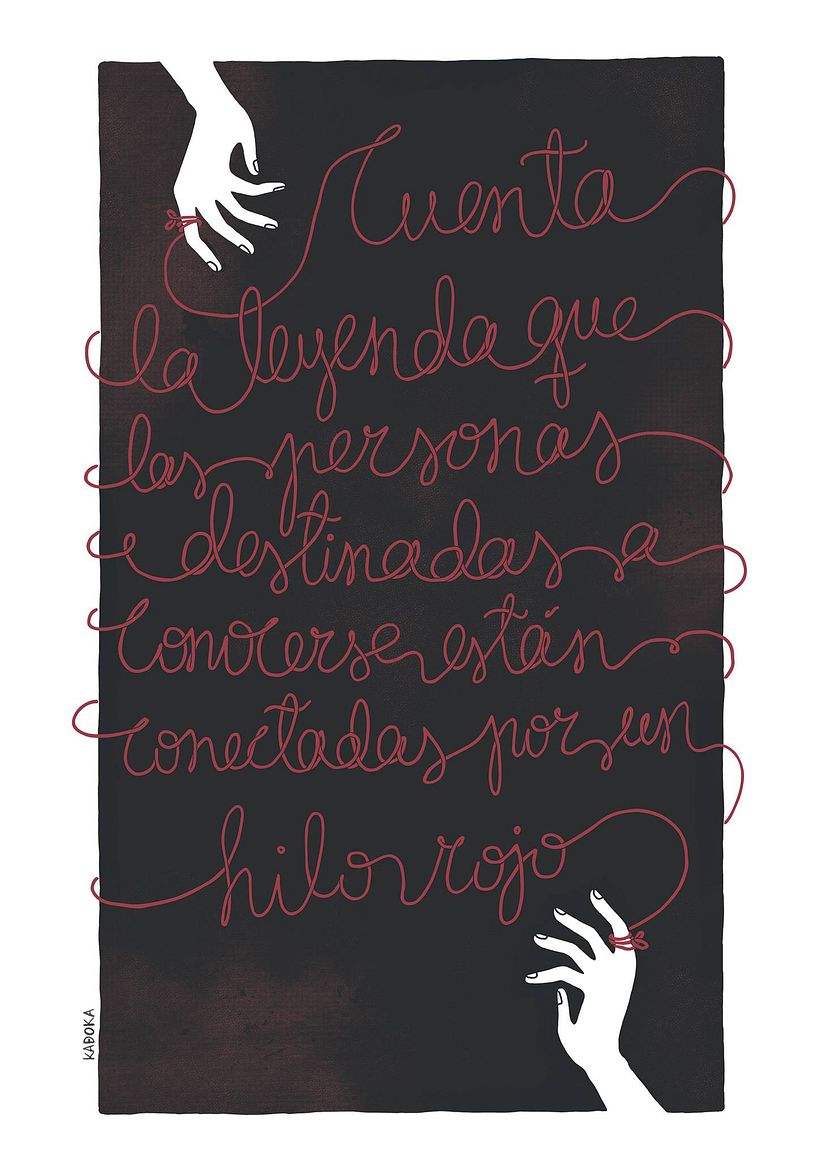 Cuenta
la leyenda que
las personas
destinadas a
conocerse están
conectadas por un
hilo rojo
KADOKA